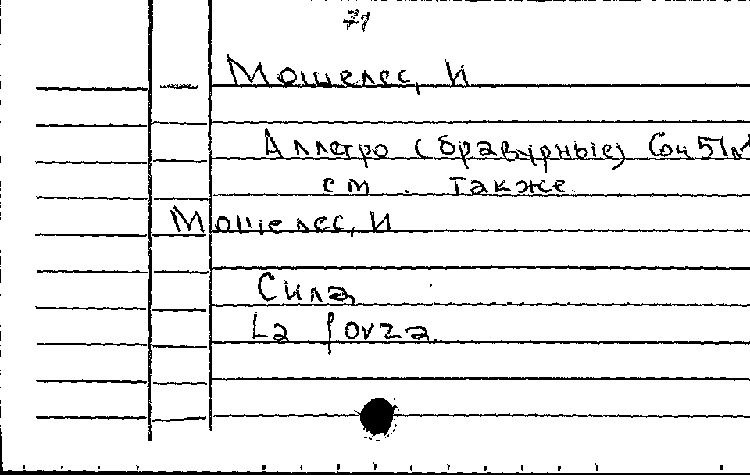 71
Мошелес, И
Аллегро (бравурные) Соч 51
см. также
Мошелес, И
Сила
La forza